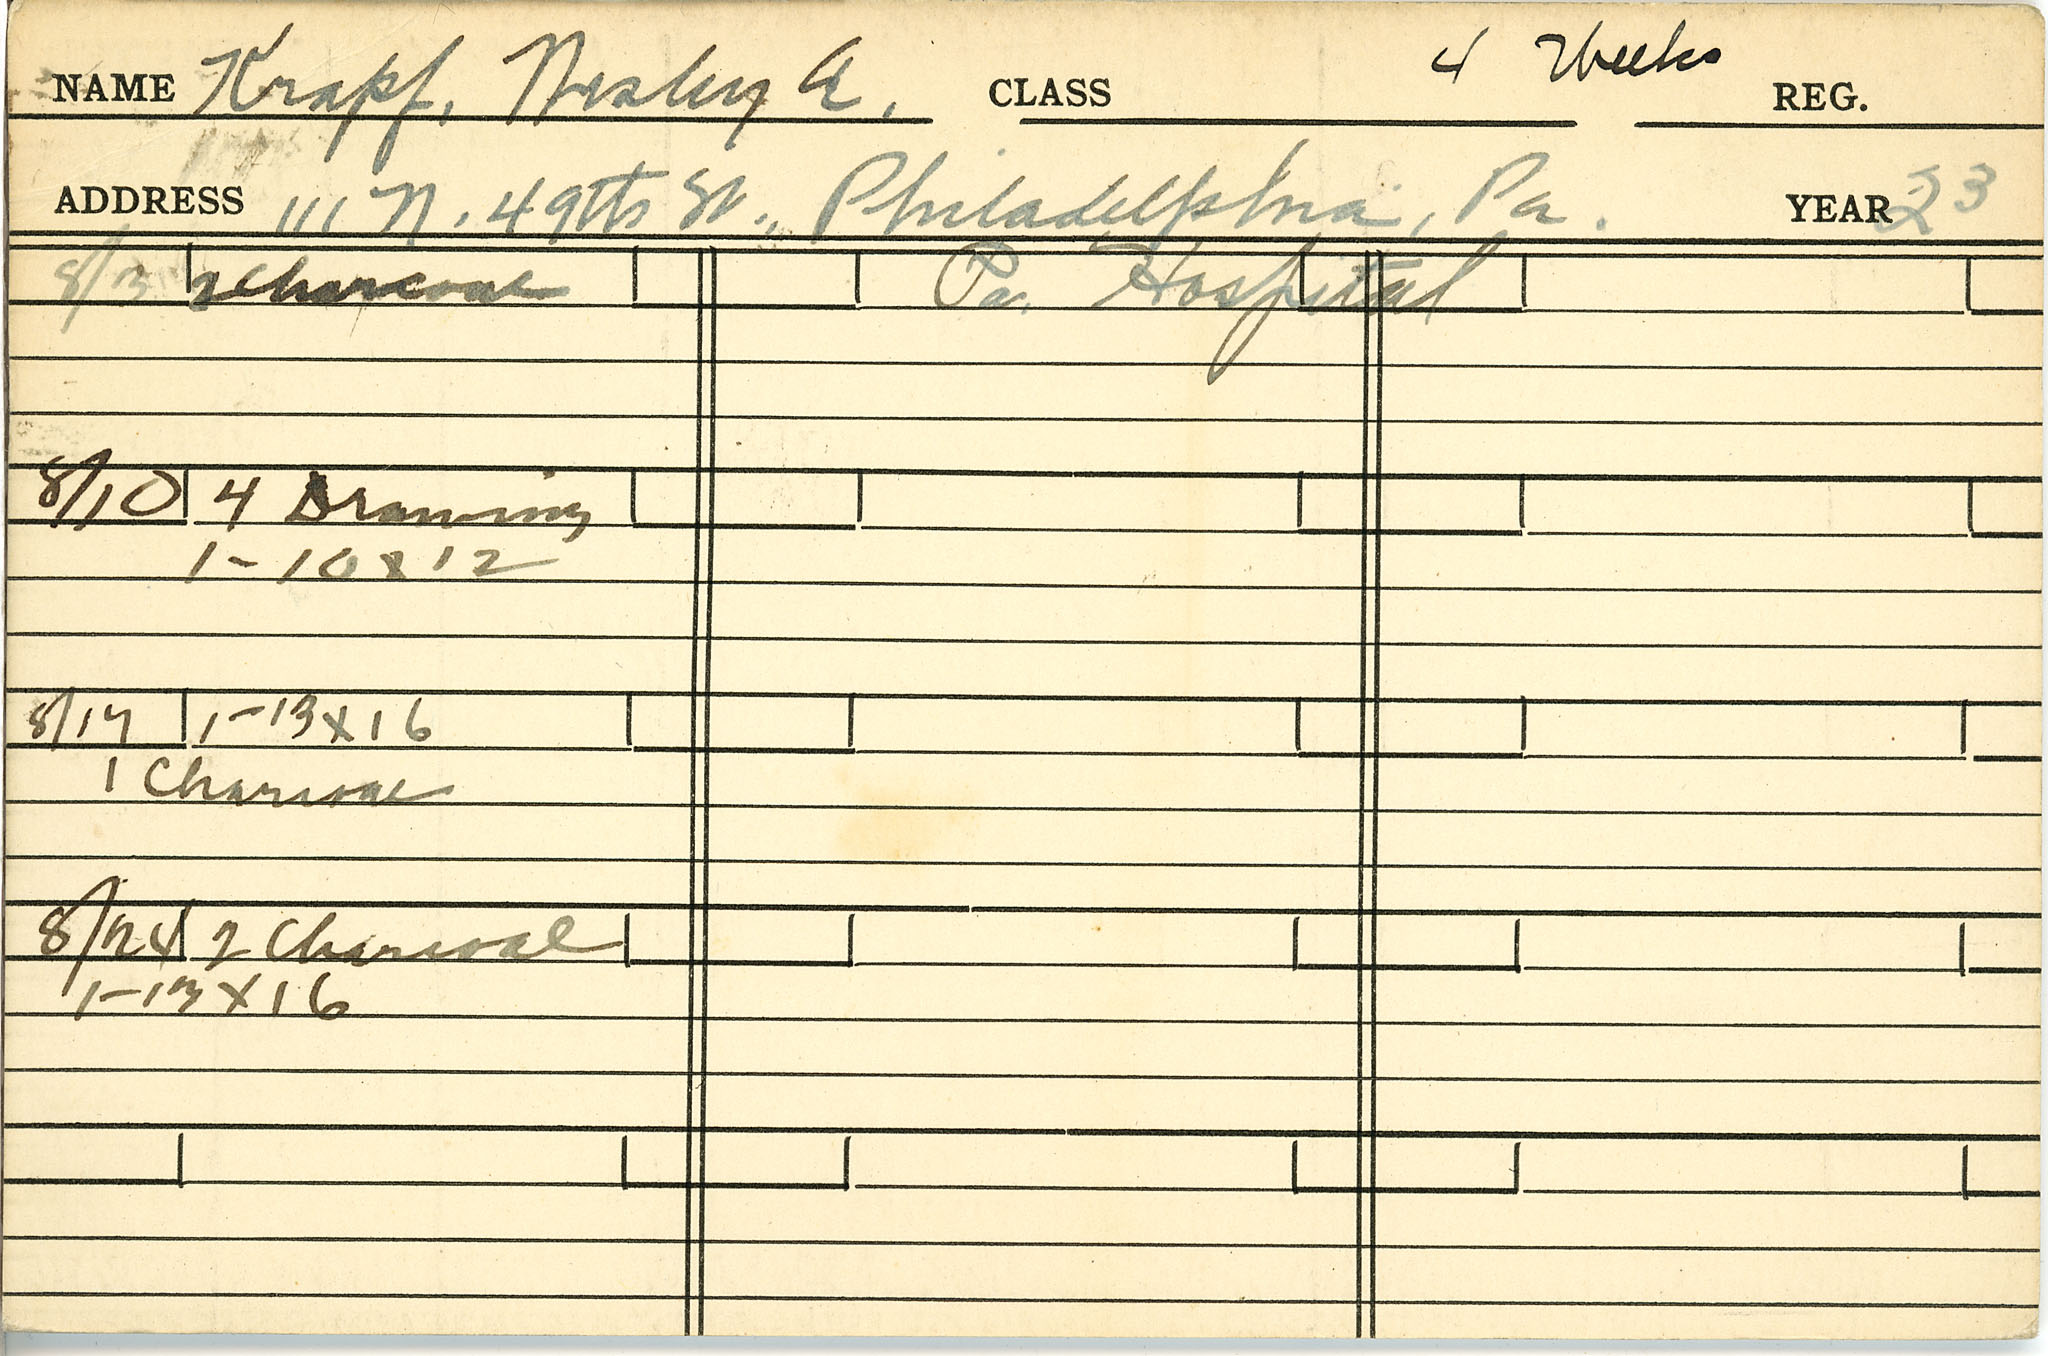 NAME Krapf, Wesley A. CLASS 4 Weeks REG.
ADDRESS 111 N. 49th St., Philadelphia, Pa. YEAR 23
8/3 2 Charcoal Pa. Hospital
8/10 4 Drawing
1-10x12
8/17 1-13x16
1 Charcoal
8/24 2 Charcoal
1-13x16